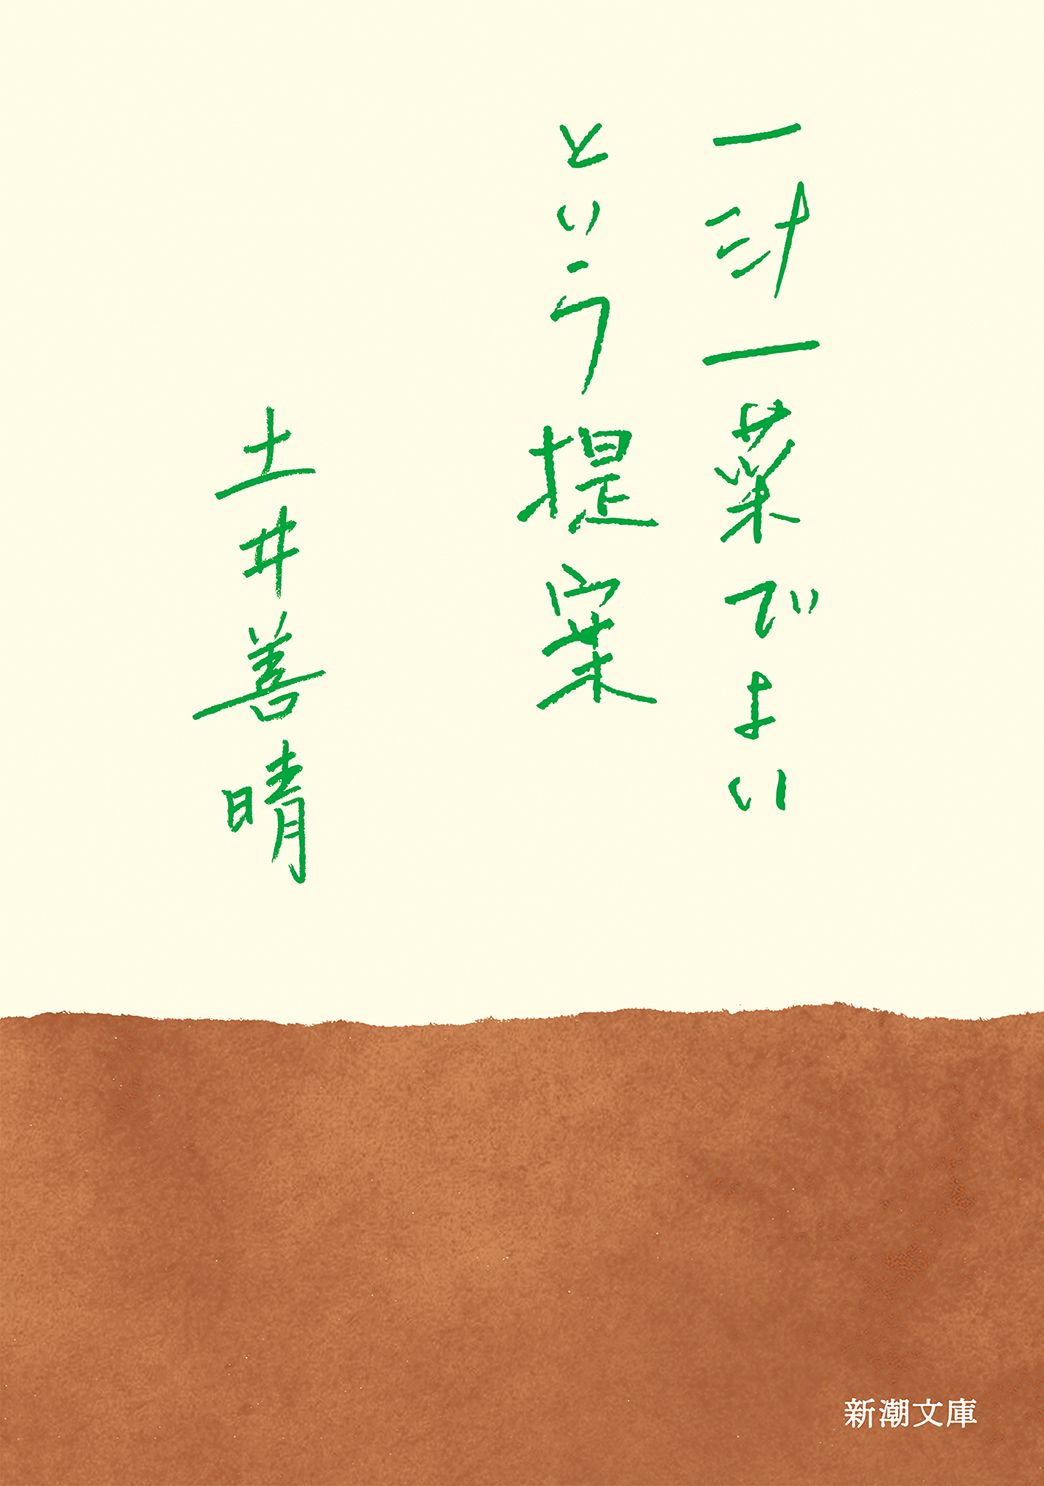 一汁一菜でよい
という提案
土井善晴
新潮文庫